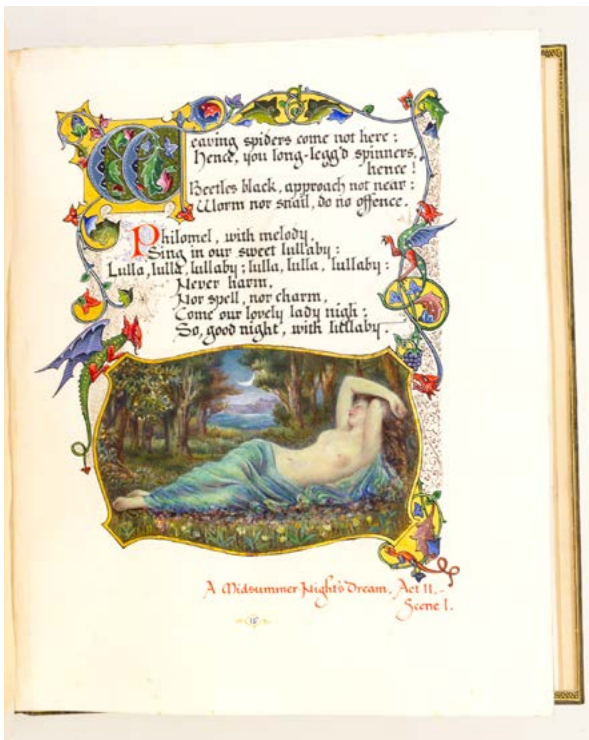 Weaving spiders come not here :
Hence, you long-legg'd spinners,
hence !
Beetles black, approach not near :
Worm nor snail, do no offence.
Philomel, with melody,
Sing in our sweet lullaby :
Lulla, lulla, lullaby ; lulla, lulla, lullaby :
Never harm,
Nor spell, nor charm,
Come our lovely lady nigh ;
So, good night, with lullaby.
A Midsummer Night's Dream. Act II.-
Scene I.
15